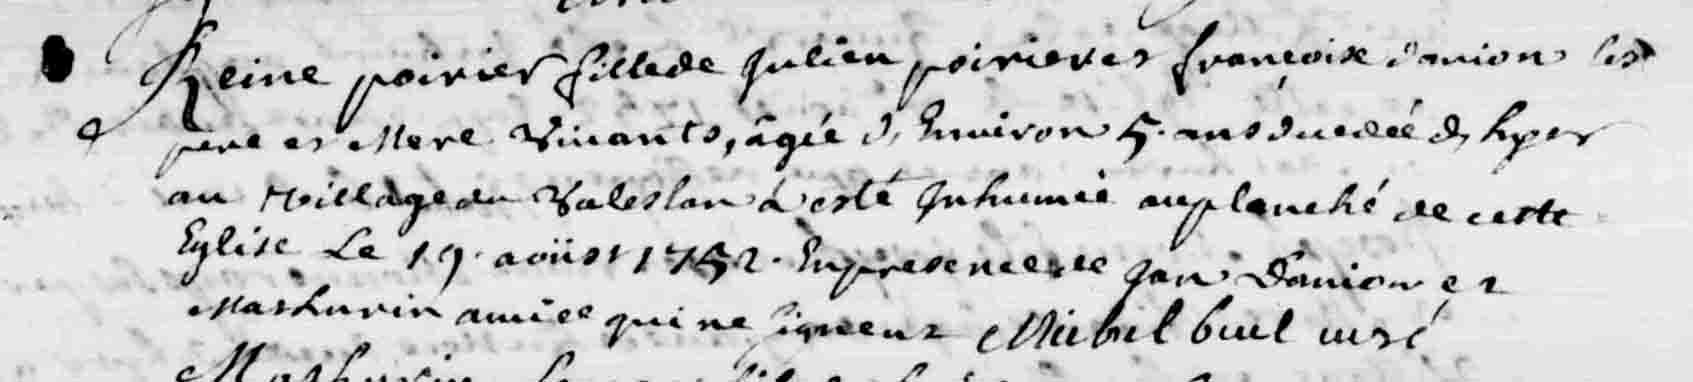 Reine poirier fille de Julien poirier et françoise danion les
pere et Mere Vivants, âgée d'Environ 5. ans decedée d'hyer
au village du Valeslan à esté Inhumée au planché de cette
Eglise Le 19. aoüst 1752. En presence de Jan Danion et
Mathurin amice qui ne signent Michel buel curé
Mathurin